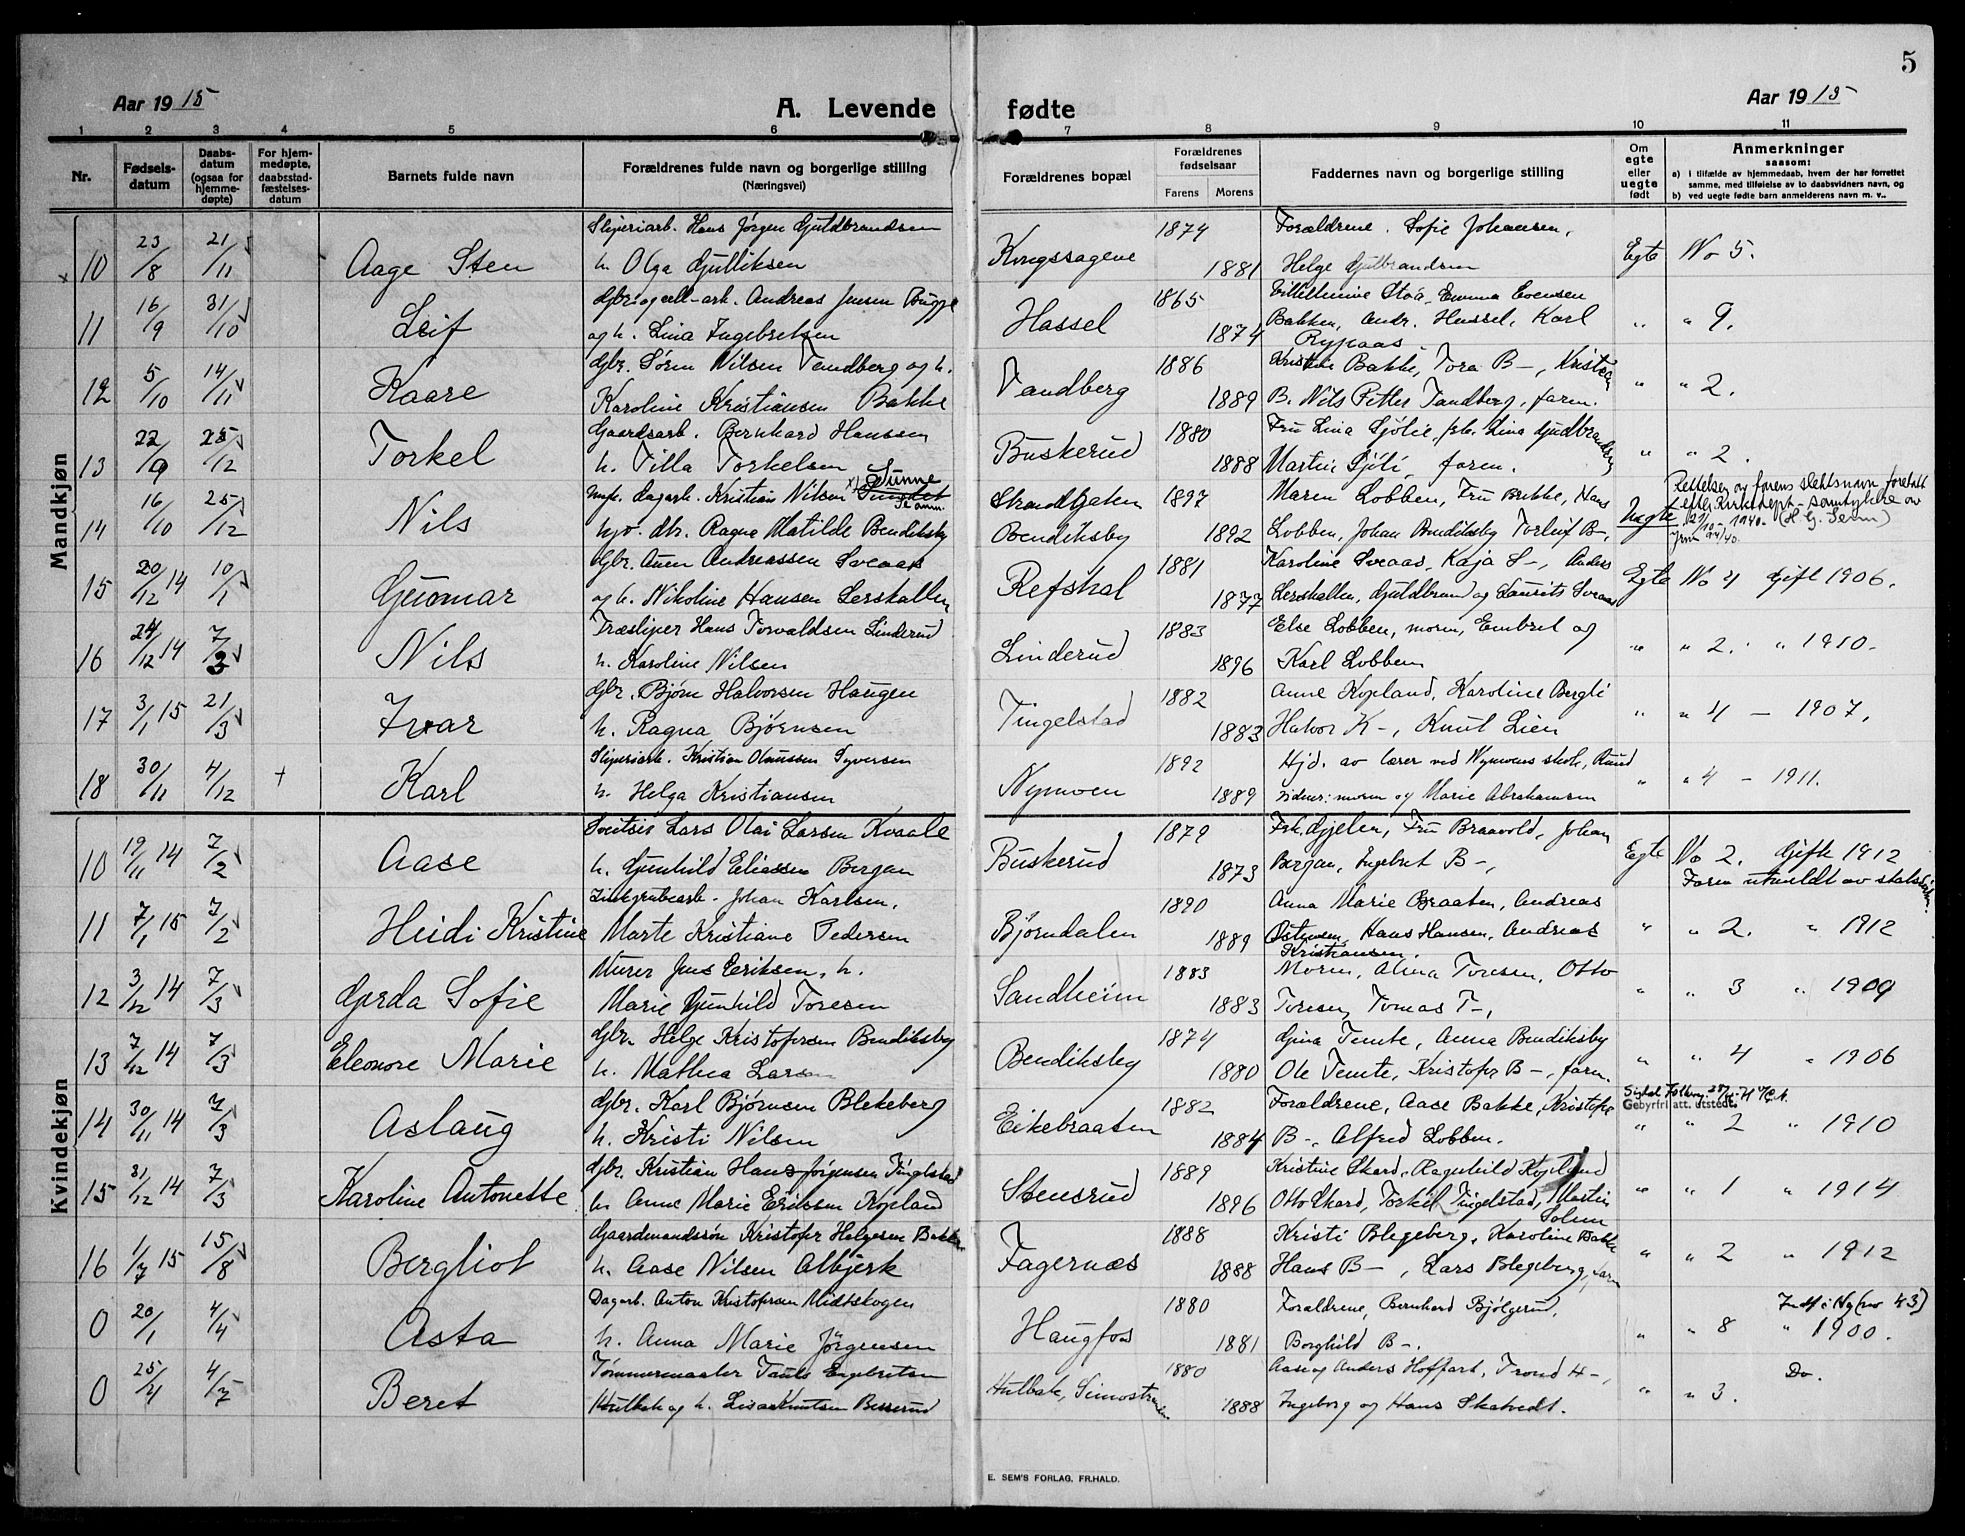 5
Aar 1915 A. Levende fødte Aar 1915
1 2 3 4 5 6 7 8 9 10 11
Nr. Fødsels-datum Daabs-datum (ogsaa for hjemme-døpte) For hjem-medøpte, daabsstad-fæstelses-datum Barnets fulde navn Forældrenes fulde navn og borgerlige stilling (Næringsvei) Forældrenes bopæl Forældrenes fødselsaar Farens Morens Faddernes navn og borgerlige stilling Om egte eller uegte født Anmerkninger saasom: a) i tilfælde av hjemmedaab, hvem der har forrettet samme, med tilføielse av to daabsvidners navn, og b) ved uegte fødte barn anmelderens navn m. v..
Mandkjøn
10 23/8 21/11 Aage Sten Sliperiarb. Hans Jørgen Guldbrandsen 1874 Forældrene. Sofie Johansen,
h. Olga Gulliksen Kongssagene 1881 Helge Gulbrandsen Egte No 5.
11 16/9 31/10 Leif Gbr. og cell-arb. Andreas Jensen Bugge Hassel 1865 Villhelmine Stoa, Emma Evensen
og h. Lina Ingebretsen 1874 Bakken, Andr. Hassel, Karl Rypaas " " 9.
12 5/10 14/11 Kaare Gbr. Søren Nilsen Tandberg og h. Tandberg 1886 Kristine Bakke, Tora B-, Kristian
Karoline Kristiansen Bakke 1889 B. Nils Petter Tandberg, faren. " " 2.
13 22/9 25/12 Torkel Gaardsarb. Bernhard Hanssen Buskerud 1880 Fru Lina Sjølie, frk. Lina Gudbrandsen
h. Tilla Torkelsen 1888 Martin Sjøli, faren. " " 2.
14 16/10 25/12 Nils Ungk. dagarb. Kristian Nilsen x) Sunne Strandgaten 1897 Maren Lobben, Fru Bakke, Hans
Ragna Matilde Bendiksby Bendiksby 1892 Lobben, Johan Bendiksby Torleif B-, Uegte Rettelsen og farens slektsnavn foretatt
15 20/12 14 10/1 Gunnar Gbr. Auen Andreassen Sveaas Refshal 1881 Karoline Sveaas, Kaja S-, Anders
og h. Nikoline Hansen Lerskallen 1877 Lerskallen, Guldbrand og Laurits Sveaas Egte No 4 Gift 1906.
16 24/12 14 7/3 Nils Træsliper Hans Torvaldsen Linderud Linderud 1883 Else Lobben, moren, Embret og
h. Karoline Nilsen 1896 Karl Lobben " " 2. " 1910.
17 3/1 15 21/3 Ivar Gbr. Bjørn Halvorsen Haugen Tingelstad 1882 Anne Kopland, Karoline Bergli
h. Ragna Bjørnsen 1883 Halvor K-, Knut Lien " " 4 - 1907.
18 30/11 4/12 + Karl Sliperiarb. Kristian Olaussen Syversen Nymoen 1892 Hjd. av lærer ved Nymoens skole, Ruud
h. Helga Kristiansen 1889 vidner: moren og Marie Abrahamsen " " 4 - 1911.
Kvindekjøn
10 19/11 14 7/2 Aase Lars Olai Larsen Kvaale Buskerud 1879 Frk. Gjelen, Fru Braavold, Johan
h. Gunhild Eliassen Bergan 1873 Bergan, Ingebret B-, Egte No 2. Gift 1912
Faren utmeldt av statskirken.
11 7/1 15 7/2 Heidi Kristine Johan Karlsen, Bjørndalen 1890 Anna Marie Braaten, Andreas
Marte Kristiane Pedersen 1889 Østensen, Hans Hansen, Andreas Kristiansen. " " 2. " 1912
12 3/12 14 7/3 Gerda Sofie Murer Jens Eriksen, h. Sandheim 1883 Moren, Alma Toresen, Otto
Marie Gunhild Toresen 1883 Toresen, Tomas T-, " " 3 " 1909
13 7/12 14 7/3 Eleonore Marie Gbr. Helge Kristofersen Bendiksby Bendiksby 1874 Gina Temte, Anna Bendiksby
h. Mathea Larsen 1880 Ole Temte, Kristofer B-, faren. " " 4 " 1906
14 30/11 14 7/3 Aslaug Gbr. Karl Bjørnsen Blekeberg Eikebraaten 1882 Forældrene, Aase Bakke, Kristofer Gebyrfri att. utstedt.
h. Kristi Nilsen 1884 B-, Alfred Lobben. " " 2 " 1910
15 31/12 14 7/3 Karoline Antonette Gbr. Kristian Hans Jørgensen Tingelstad Stensrud 1889 Kristine Skard, Ragnhild Kopland
h. Anne Marie Eriksen Kopland 1896 Otto Skard, Torkil Tingelstad, Martin Solum " " 1 " 1914
16 1/7 15 15/8 Bergliot Gaardmandssøn Kristofer Helgesen Bakken Fagernæs 1888 Kristi Blegeberg, Karoline Bakke
h. Aase Nilsen Albjerk 1888 Hans B-, Lars Blegeberg, faren " " 2 " 1912
0 20/1 4/4 Asta Dagarb. Anton Kristofersen Midtskogen Haugfos 1880 Forældrene, Bernhard Bjølgerud, Indf. i Ng (no 43)
h. Anna Marie Jörgensen 1881 Borghild B-. " " 8 " 1900.
0 25/4 4/7 Beret Tømmermaaler Engebretsen Hulbak, Simostranden 1880 Aase og Anders Hoffart, Trond H-, Do.
Hulbak og h. Lisa Knutsen Besserud 1888 Ingeborg og Hans Skatvedt. " " 3.
E. SEM'S FORLAG, FR.HALD.